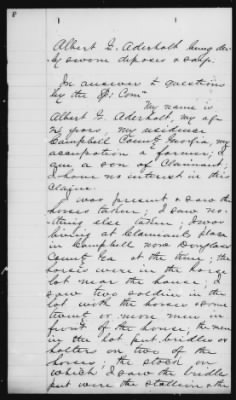 Albert G. Aderholt being du-
ly sworn deposes & says.
In answer to questions
by the Spl Com.
My name is
Albert G. Aderholt, my age
24 years, my residence
Campbell County Georgia, my
occupation a farmer; I
am a son of Claimant.
I have no interest in this
claim.
I was present & saw the
horses taken; I saw no-
thing else taken; I was
living at Claimants place
in Campbell now Douglass
County Ga at the time; the
horses were in the horse
lot near the house; I
saw two soldiers in the
lot with the horses & some
twenty or more men in
front of the house; the men
in the lot put bridles or
halters on two of the
horses, the stock on
which I saw the bridle
put were the stallion & the